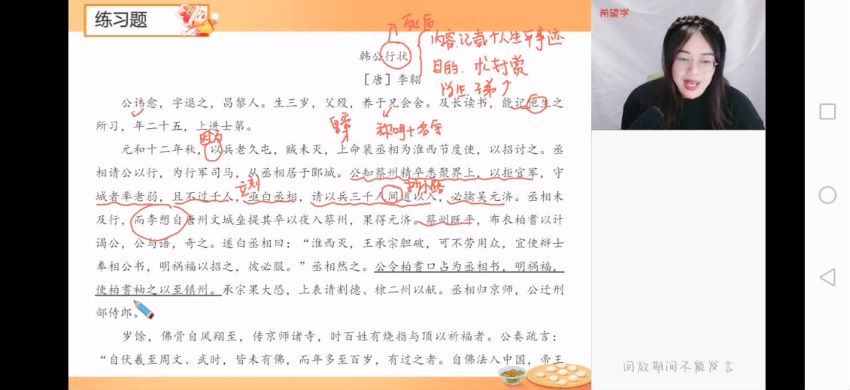 练习题
希望学
死后
韩公行状
内容:记载个人生平事迹
[唐]李翱
目的:求封赏
公讳愈,字退之,昌黎人。生三岁,父殁,养于兄会舍。及长读书,能记他生之
所习,年二十五,上进士第。
因为
皇帝
称呼+名字
元和十二年秋,以兵老久屯,贼未灭,上命裴丞相为淮西节度使,以招讨之。丞
相请公以行,为行军司马,从丞相居于郾城。公知蔡州精卒悉聚界上,以拒官军,守
立刻
城者率老弱,且不过千人,亟白丞相,请以兵三千人间道以入,必擒吴元济。丞相未
及行,而李愬自唐州文城垒提其卒以夜入蔡州,果得元济。蔡州既平,布衣柏耆以计
谒公,公与语,奇之。遂白丞相曰:“淮西灭,王承宗胆破,可不劳用众,宜使辩士
奉相公书,明祸福以招之,彼必服。”丞相然之。公令柏耆口占为丞相书,明祸福,
使柏耆袖之以至镇州。承宗果大恐,上表请割德、棣二州以献。丞相归京师,公迁刑
部侍郎。
岁馀,佛骨自凤翔至,传京师诸寺,时百姓有烧指与顶以祈福者。公奏疏言:
“自伏羲至周文、武时,皆未有佛,而年多至百岁,有过之者。自佛法入中国,帝王
回放期间不能发言